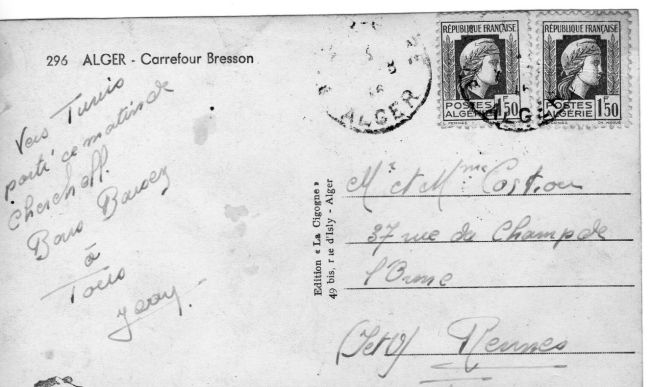 296 ALGER - Carrefour Bresson
ALGER
RÉPUBLIQUE FRANÇAISE
POSTES
ALGÉRIE
1F50
RÉPUBLIQUE FRANÇAISE
POSTES
ALGÉRIE
1F50
ALGER
Vers Tunis
parti ce matin de
Cherchell.
Bons Baisers
à
Tous
Jerry
Edition « La Cigogne »
49 bis, rue d'Isly - Alger
Mr et Mme
37 rue du Champ de
l'Orme
(I et V) Rennes